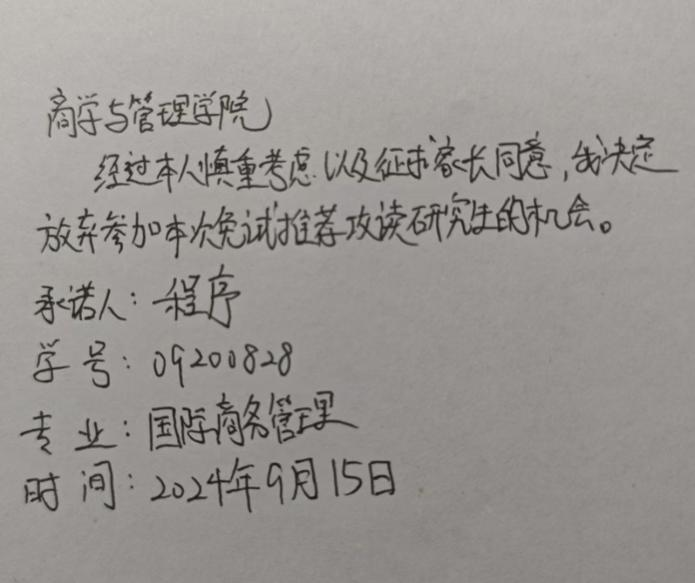 商学与管理学院
经过本人慎重考虑以及征求家长同意，我决定
放弃参加本次免试推荐攻读研究生的机会。
承诺人：程序
学号：09200828
专业：国际商务管理
时间：2024年9月15日